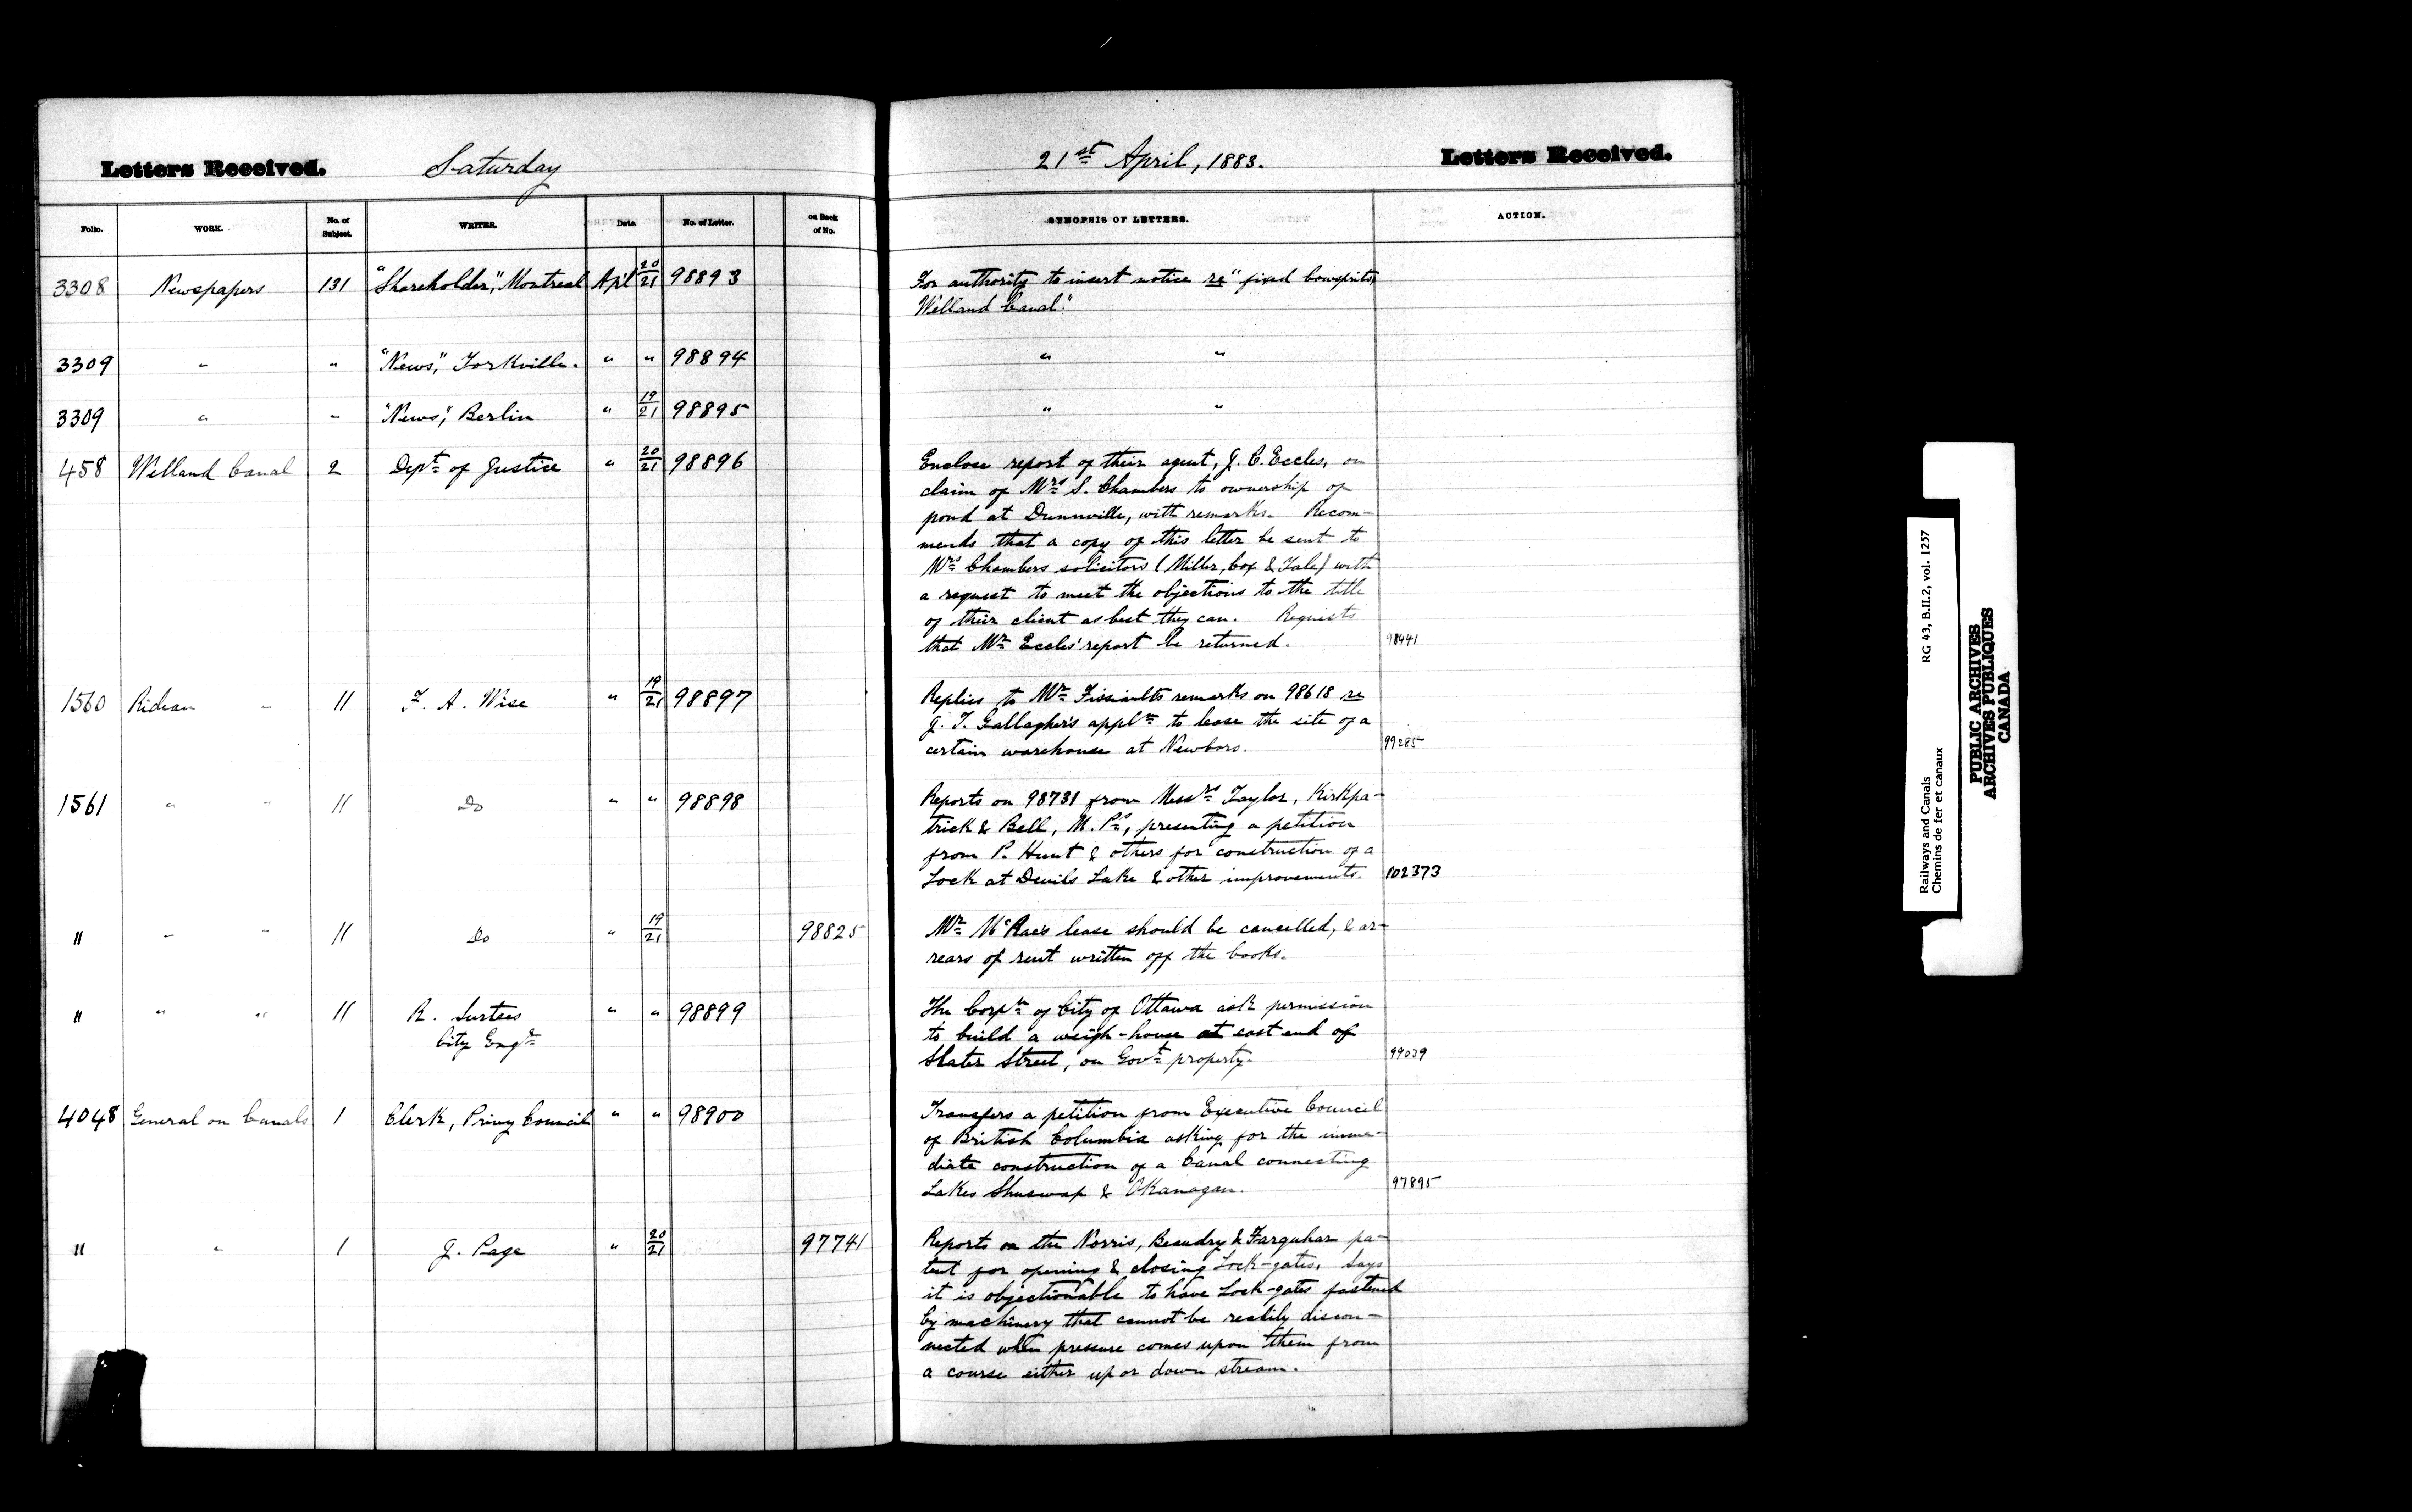 Letters Received. Saturday 21st April, 1883. Letters Received.
Folio. WORK. No. of Subject. WRITER. Date. No. of Letter. on Back of No. SYNOPSIS OF LETTERS. ACTION.
3308 Newspapers 131 "Shareholder," Montreal Apl 20/21 98893 For authority to insert notice re "fixed bowsprits,
Welland Canal."
3309 " " "News," Yorkville. " " 98894 " "
3309 " " "News," Berlin " 19/21 98895 " "
458 Welland Canal 2 Dept of Justice " 20/21 98896 Enclose report of their agent, J. C. Eccles, on
claim of Mrs S. Chambers to ownership of
pond at Dunnville, with remarks. Recom-
mends that a copy of this letter be sent to
Mrs Chambers solicitors (Miller, Cox & Yale) with
a request to meet the objections to the title
of their client as best they can. Requests
that Mr Eccles' report be returned. 98441
1560 Rideau " 11 F. A. Wise " 19/21 98897 Replies to Mr Fissiaults remarks on 98618 re
J. T. Gallagher's appln to lease the site of a
certain warehouse at Newboro. 99285
1561 " " 11 Do " " 98898 Reports on 98731 from Messrs Taylor, Kirkpa-
trick & Bell, M.Ps, presenting a petition
from P. Hunt & others for construction of a
Lock at Devils Lake & other improvements. 102373
" " " 11 Do " 19/21 98825 Mr McRae's lease should be cancelled, & ar-
rears of rent written off the books.
" " " 11 R. Surtees " " 98899 The Corpn of City of Ottawa ask permission
City Engr to build a weigh-house at east end of
Slater Street, on Govt property. 99039
4048 General on Canals 1 Clerk, Privy Council " " 98900 Transfers a petition from Executive Council
of British Columbia asking for the imme-
diate construction of a Canal connecting
Lakes Shuswap & Okanagan. 97895
" " 1 J. Page " 20/21 97741 Reports on the Norris, Beaudry & Farquhar pa-
tent for opening & closing Lock-gates. Says
it is objectionable to have Lock-gates fastened
by machinery that cannot be readily discon-
nected when pressure comes upon them from
a course either up or down stream.
Railways and Canals RG 43, B.II.2, vol. 1257
Chemins de fer et canaux
PUBLIC ARCHIVES
ARCHIVES PUBLIQUES
CANADA